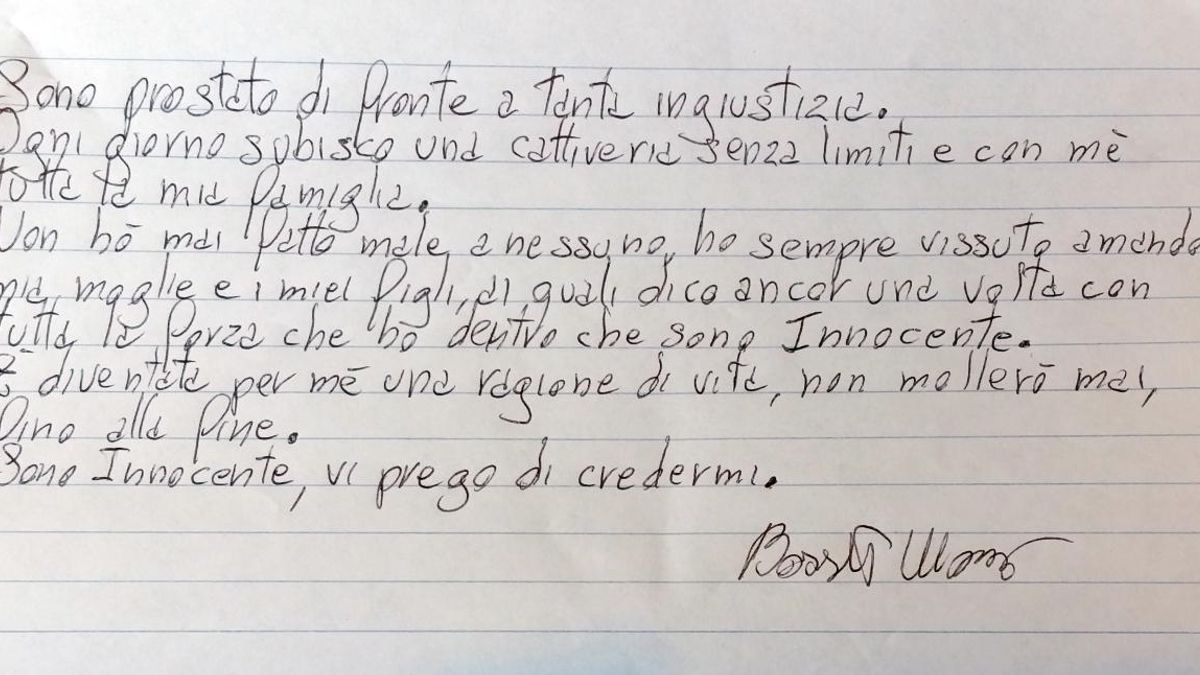 Sono prostato di fronte a tanta ingiustizia.
Ogni giorno subisko una cattiveria senza limiti e con mè
tutta la mia famiglia.
Non hò mai fatto male a nessuno, ho sempre vissuto amando
mia moglie e i miei figli, ai quali dico ancor una volta con
tutta la forza che hò dentro che sono Innocente.
È diventata per mè una ragione di vita, non mollerò mai,
fino alla fine.
Sono Innocente, vi prego di credermi.
Bossetti Massi